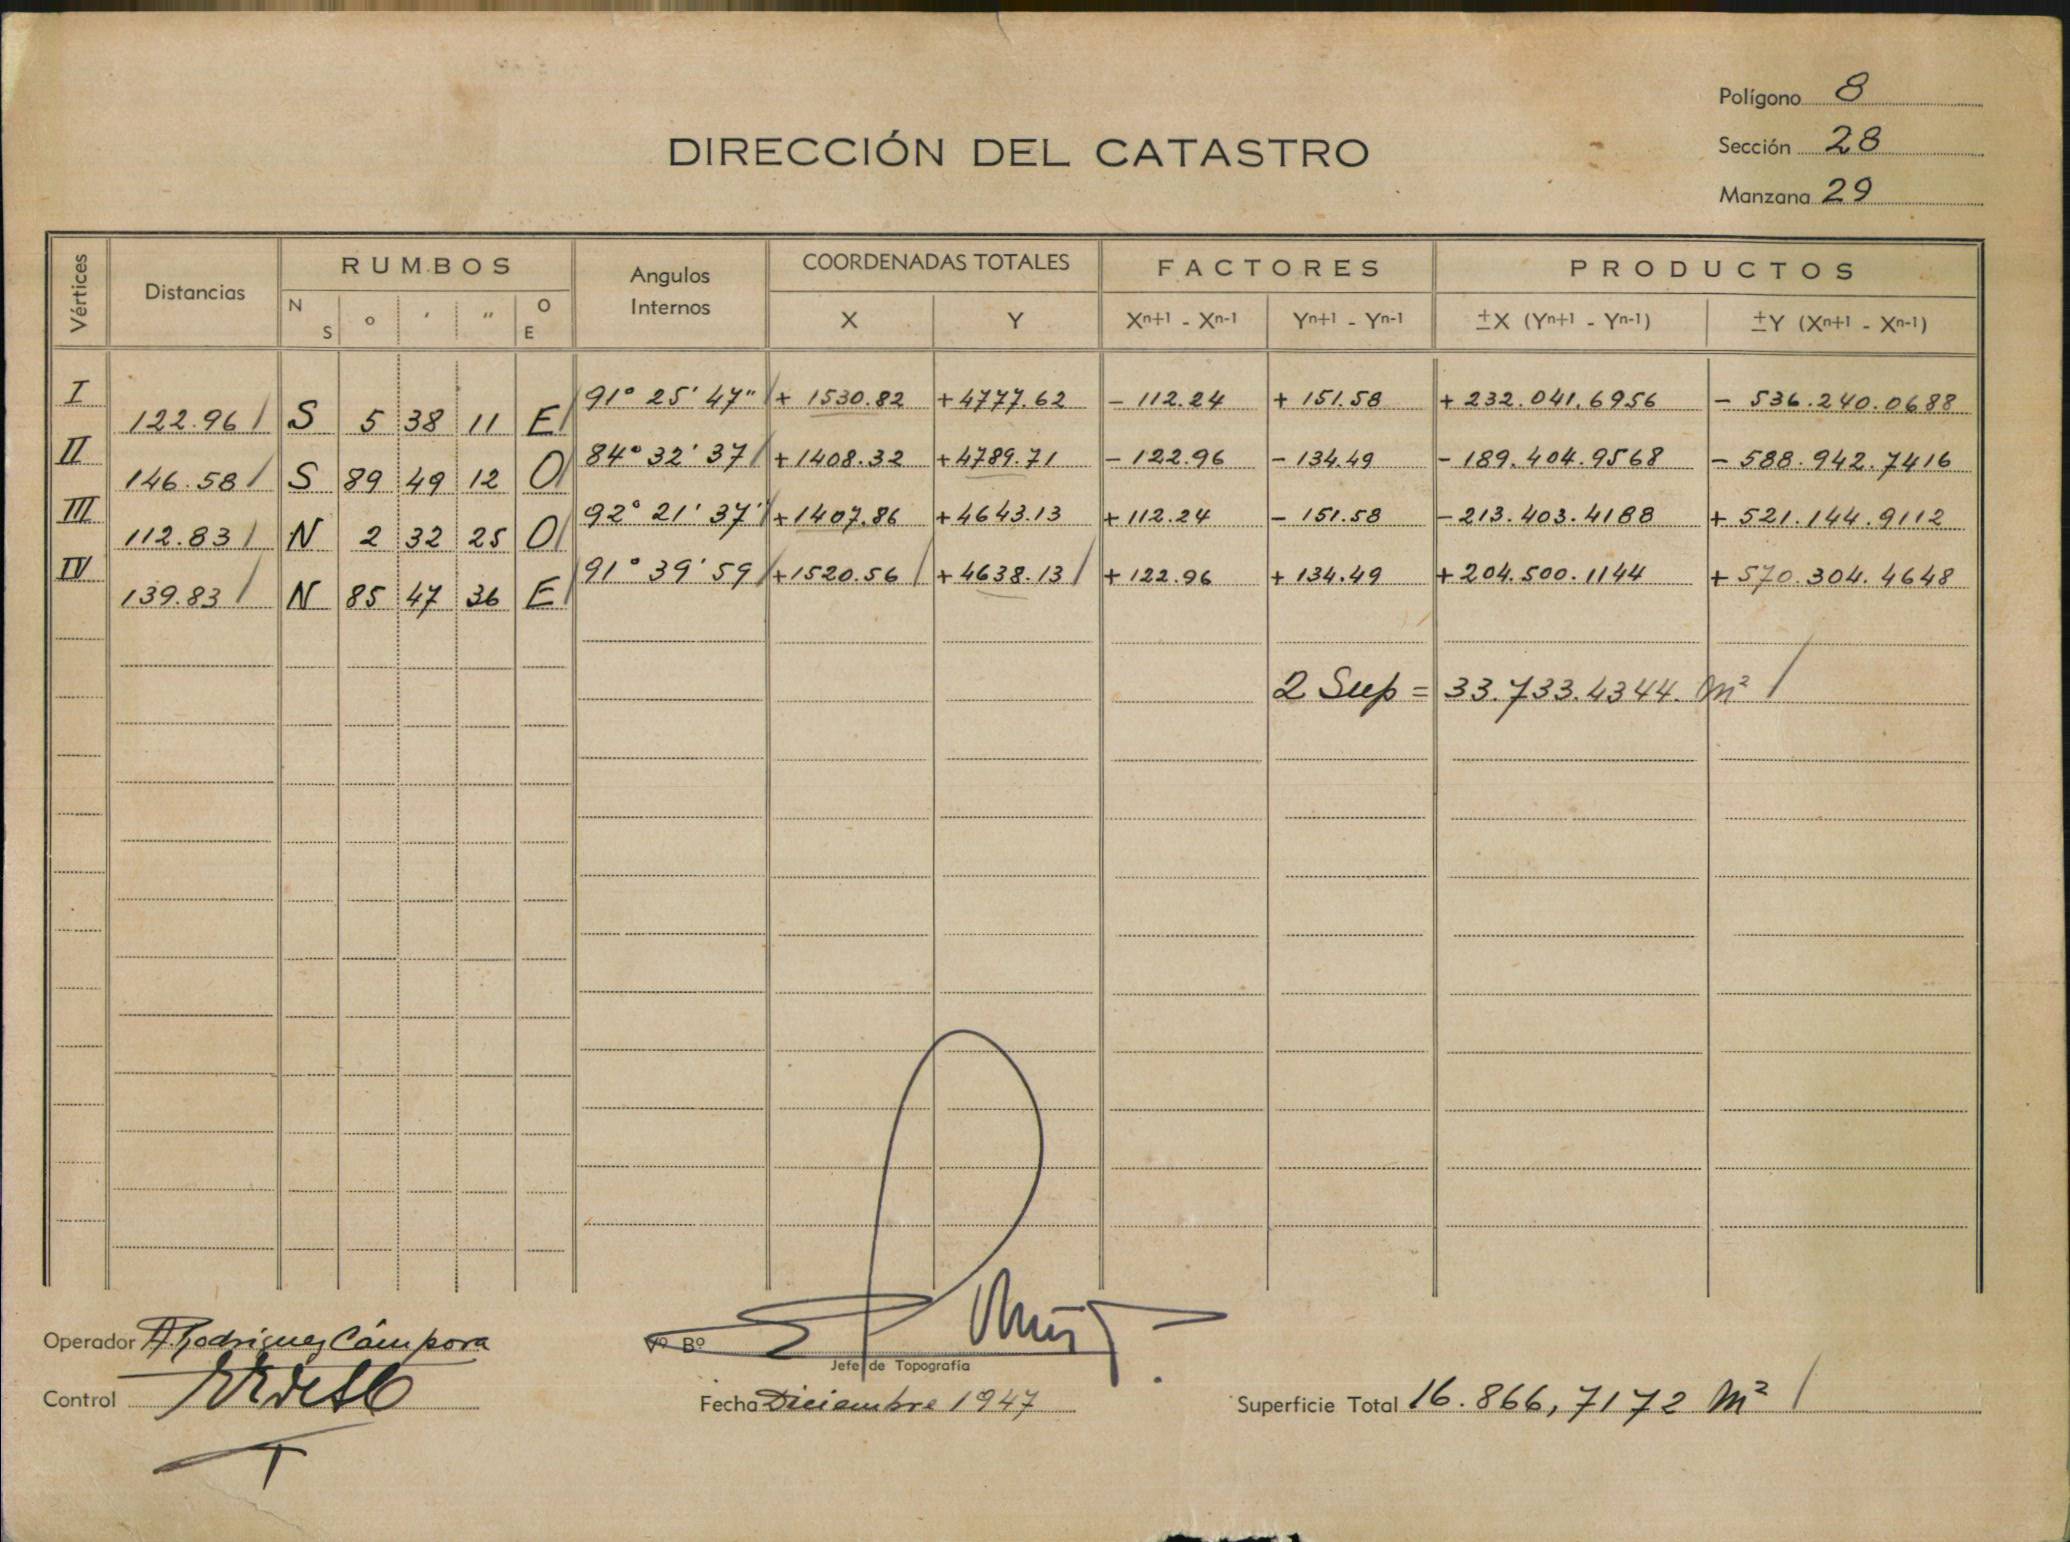 Polígono 8
DIRECCIÓN DEL CATASTRO
Sección 28
Manzana 29
Vértices Distancias RUMBOS N S o ' " O E Angulos Internos COORDENADAS TOTALES X Y FACTORES Xn+1 - Xn-1 Yn+1 - Yn-1 PRODUCTOS ±X (Yn+1 - Yn-1) ±Y (Xn+1 - Xn-1)
I 91° 25' 47" + 1530.82 +4777.62 - 112.24 + 151.58 + 232.041.6956 - 536.240.0688
122.96 S 5 38 11 E
II 84° 32' 37 +1408.32 +4789.71 - 122.96 - 134.49 - 189.404.9568 - 588.942.7416
146.58 S 89 49 12 O
III 92° 21' 37" +1407.86 +4643.13 + 112.24 - 151.58 - 213.403.4188 + 521.144.9112
112.83 N 2 32 25 O
IV 91° 39' 59 +1520.56 +4638.13 + 122.96 + 134.49 + 204.500.1144 + 570.304.4648
139.83 N 85 47 36 E
2 Sup = 33.733.4344. m²
Operador A. Rodriguez Cámpora
Vº Bº
Jefe de Topografía
Control
Fecha Diciembre 1947
Superficie Total 16.866,7172 m²